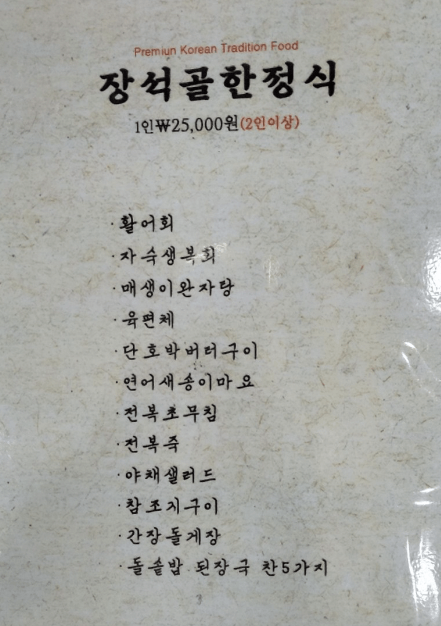 Premiun Korean Tradition Food
장석골한정식
1인₩25,000원(2인이상)
·활어회
·자숙생복회
·매생이완자탕
·육편체
·단호박버터구이
·연어새송이마요
·전복초무침
·전복죽
·야채샐러드
·참조기구이
·간장돌게장
·돌솥밥 된장국 찬5가지